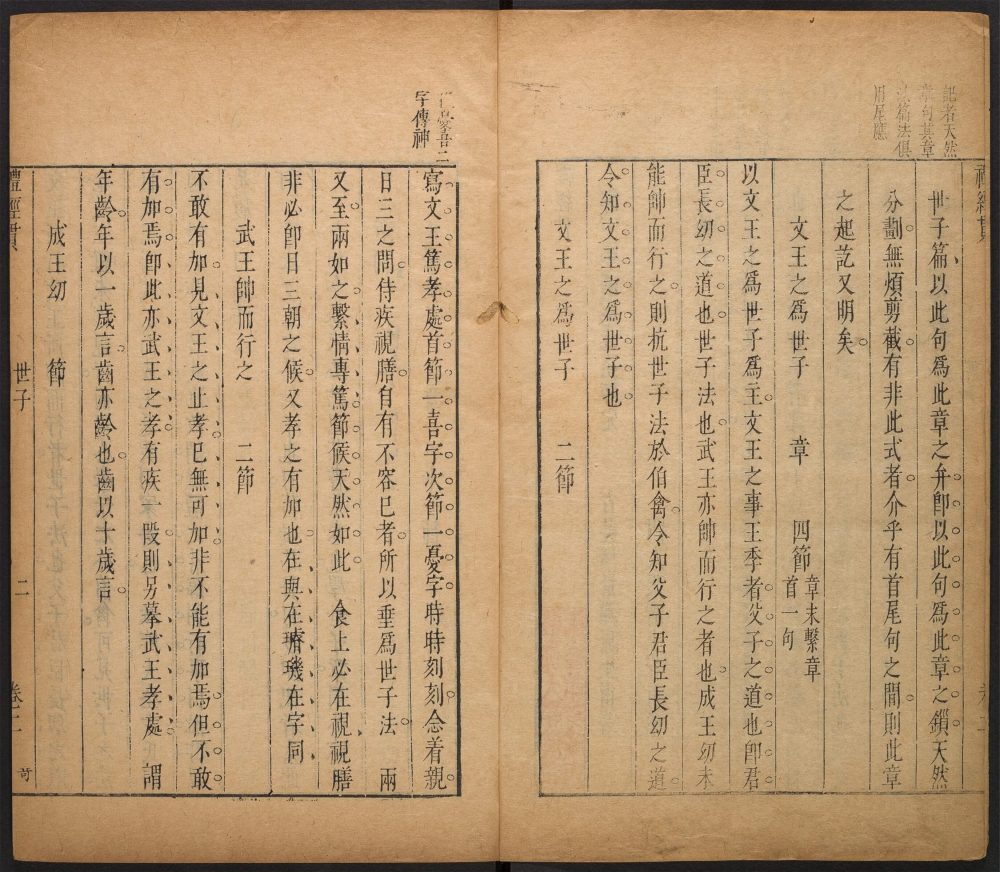 記者天然
章句其章
法篇法俱
用尾應
世子篇以此句為此章之弁卽以此句為此章之鎻天然
分劃無煩剪截有非此式者介乎有首尾句之間則此章
之起訖又明矣
文王之為世子 章 四節 章末繫章
首一句
以文王之為世子為主文王之事王季者父子之道也卽君
臣長幼之道也世子法也武王亦帥而行之者也成王幼未
能帥而行之則抗世子法於伯禽令知父子君臣長幼之道
令知文王之為世子也
文王之為世子 二節
字傳神
寫文王篤孝處首節一喜字次節一憂字時時刻刻念着親
日三之問侍疾視膳自有不容已者所以垂為世子法 兩
又至兩如之繫情專篤節候天然如此 食上必在視視膳
非必卽日三朝之候又孝之有加也在與在璿璣在字同
武王帥而行之 二節
不敢有加見文王之止孝已無可加非不能有加焉但不敢
有加焉卽此亦武王之孝有疾一段則另摹武王孝處 謂
年齡年以一歲言齒亦齡也齒以十歲言
成王幼 節
禮經貫 世子 二 卷二 可